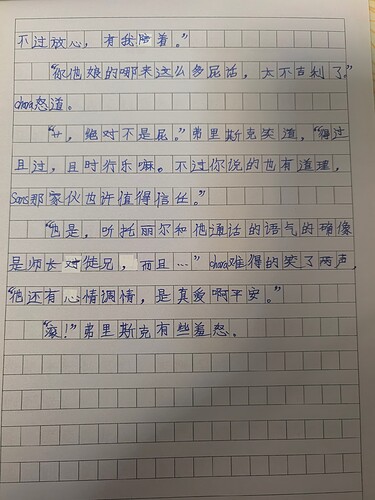 不过放心，有我陪着。”
“你他娘的哪来这么多屁话，太不吉利了。”
chara怒道。
“艹，绝对不是屁。”弗里斯克笑道，“得过
且过，且时行乐嘛。不过你说的也有道理，
Sans那家伙也许值得信任。”
“也是，听托丽尔和他通话的语气的确像
是师长对徒兄，而且…”chara难得的笑了两声，
“他还有心情调情，是真爱啊平安。”
“滚！”弗里斯克有些羞怒。